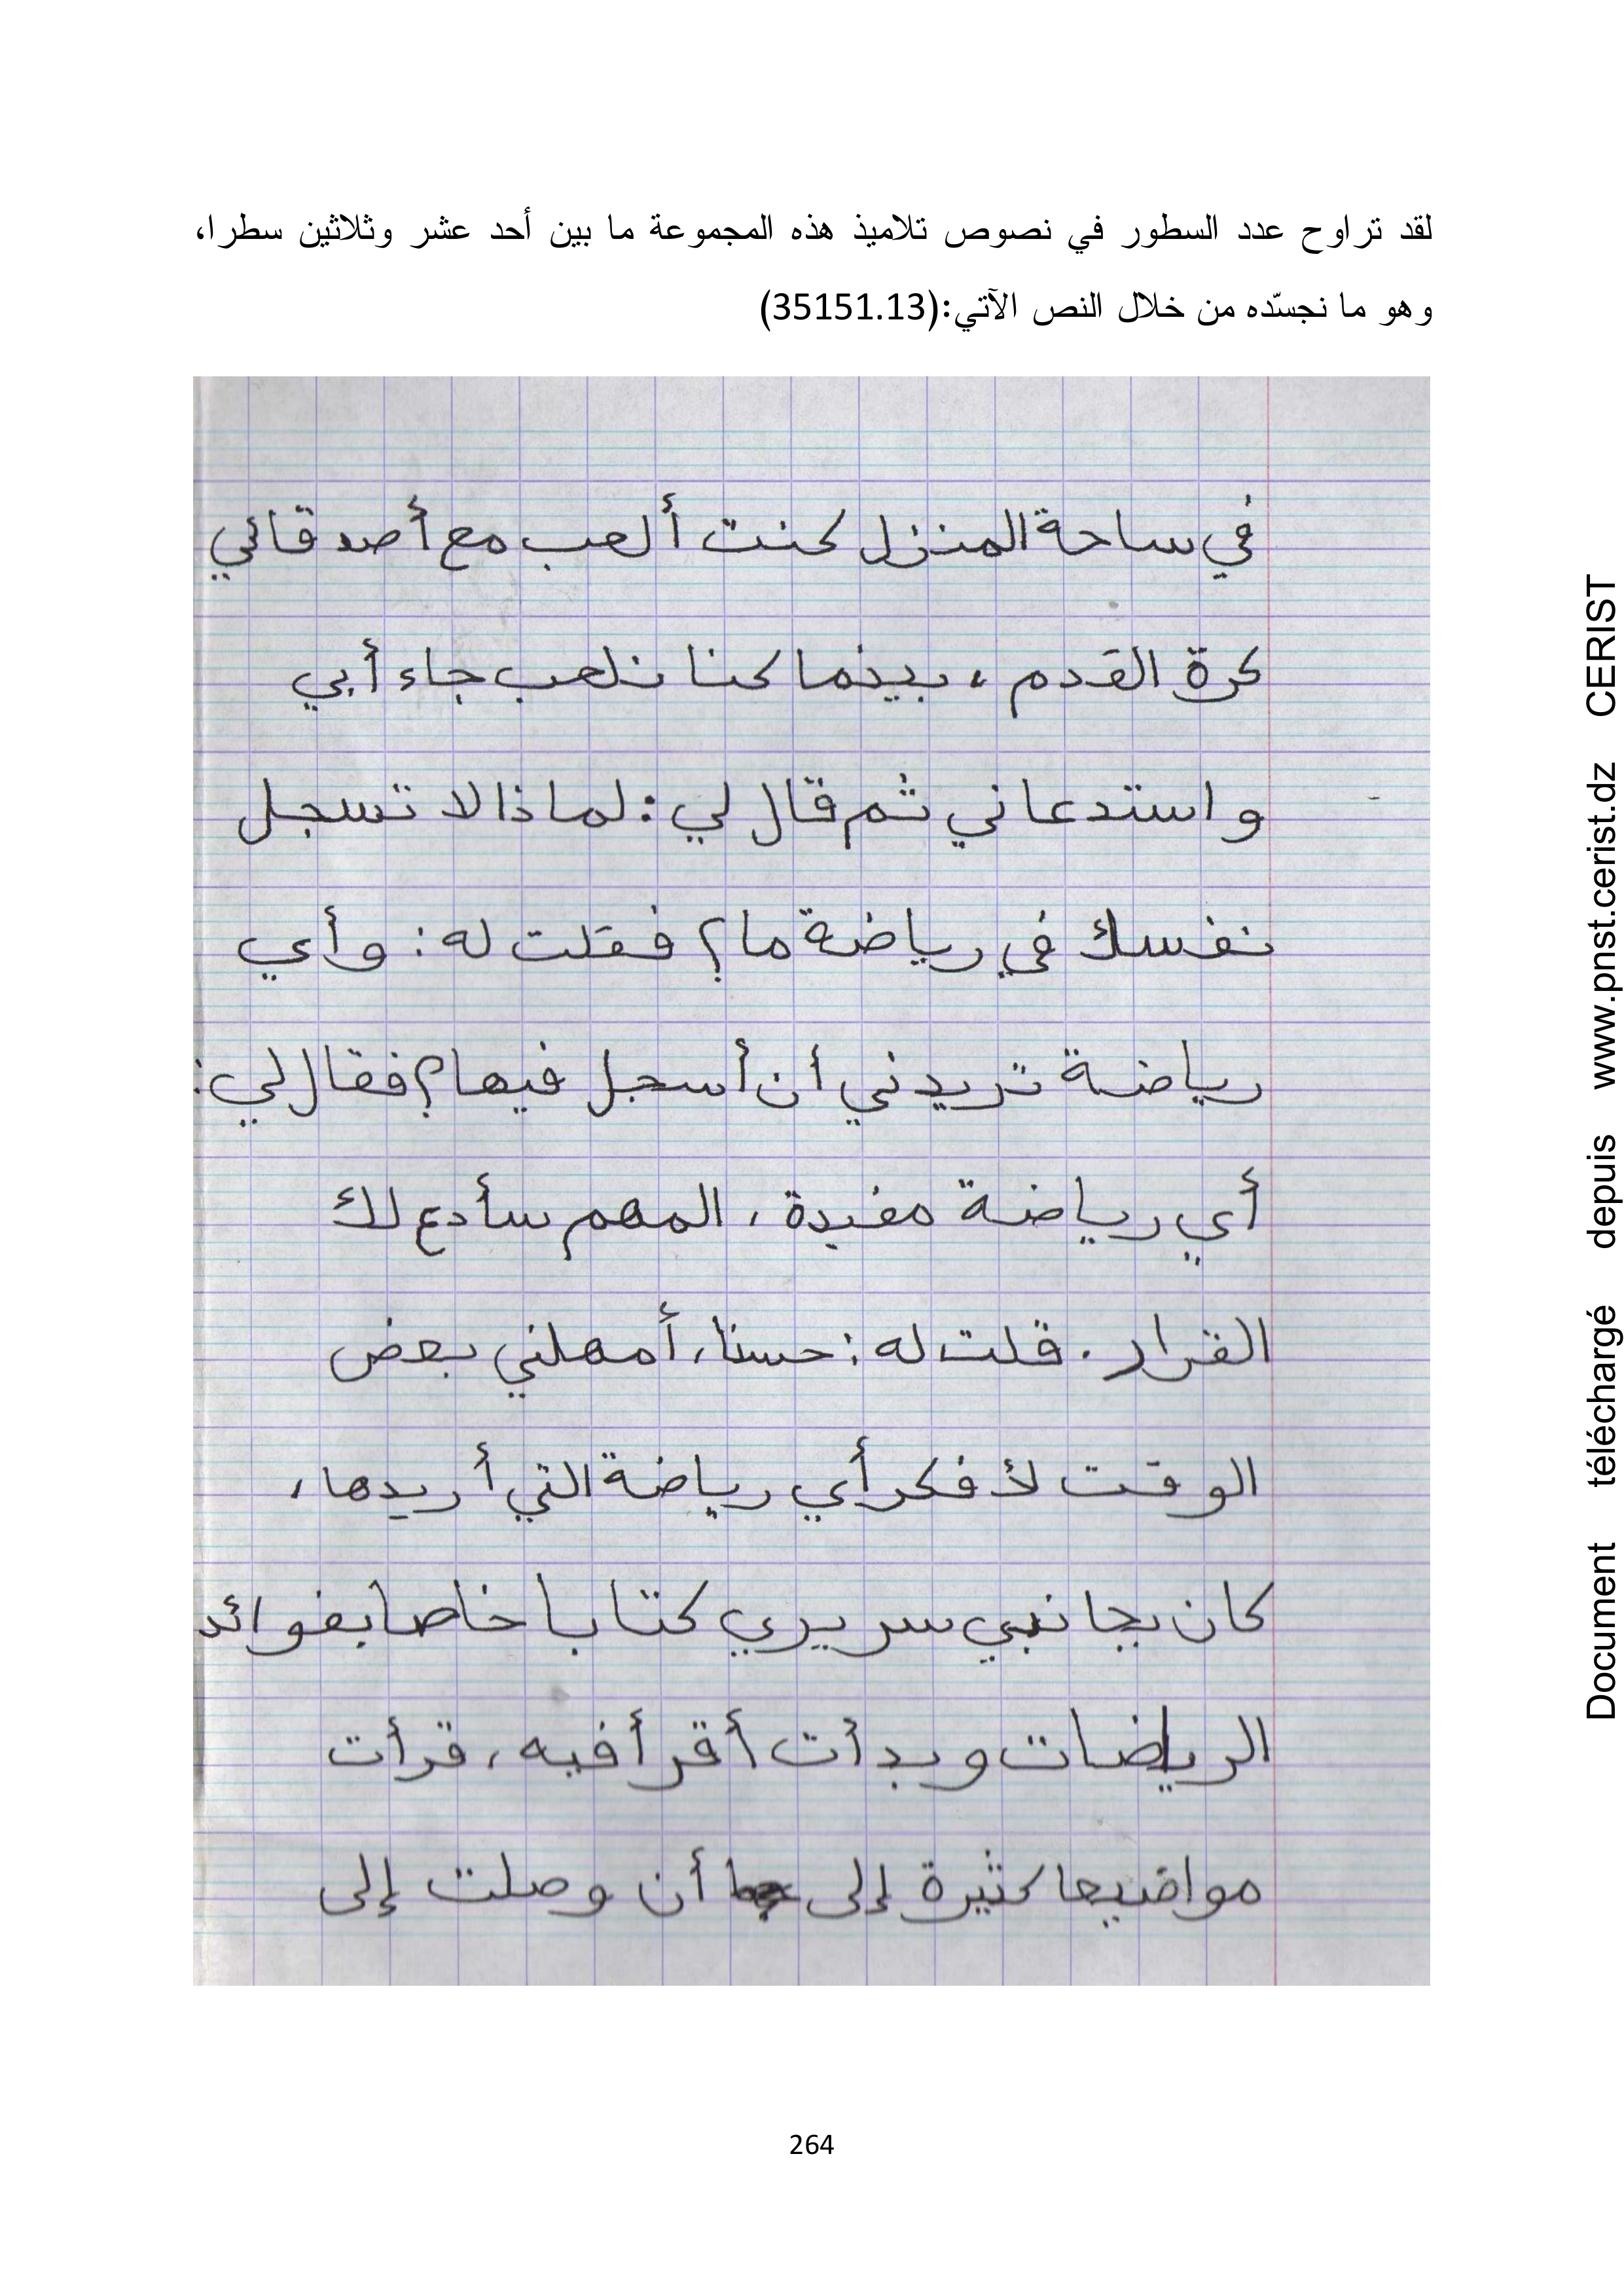 لقد تراوح عدد السطور في نصوص تلاميذ هذه المجموعة ما بين أحد عشر وثلاثين سطرا،
وهو ما نجسّده من خلال النص الآتي:(35151.13)
في ساحة المنزل كنت ألعب مع أصدقائي
كرة القدم، بينما كنا نلعب جاء أبي
واستدعاني ثم قال لي: لماذا لا تسجل
نفسك في رياضة ما؟ فقلت له: وأي
رياضة تريدني أن أسجل فيها؟ فقال لي:
أي رياضة مفيدة، المهم سأدع لك
القرار. قلت له: حسنا، أمهلني بعض
الوقت لأفكر أي رياضة التي أريدها،
كان بجانبي سريري كتابا خاصا بفوائد
الرياضات وبدأت أقرأ فيه، قرأت
مواضيعا كثيرة إلى أن وصلت إلى
264
Document téléchargé depuis www.pnst.cerist.dz CERIST